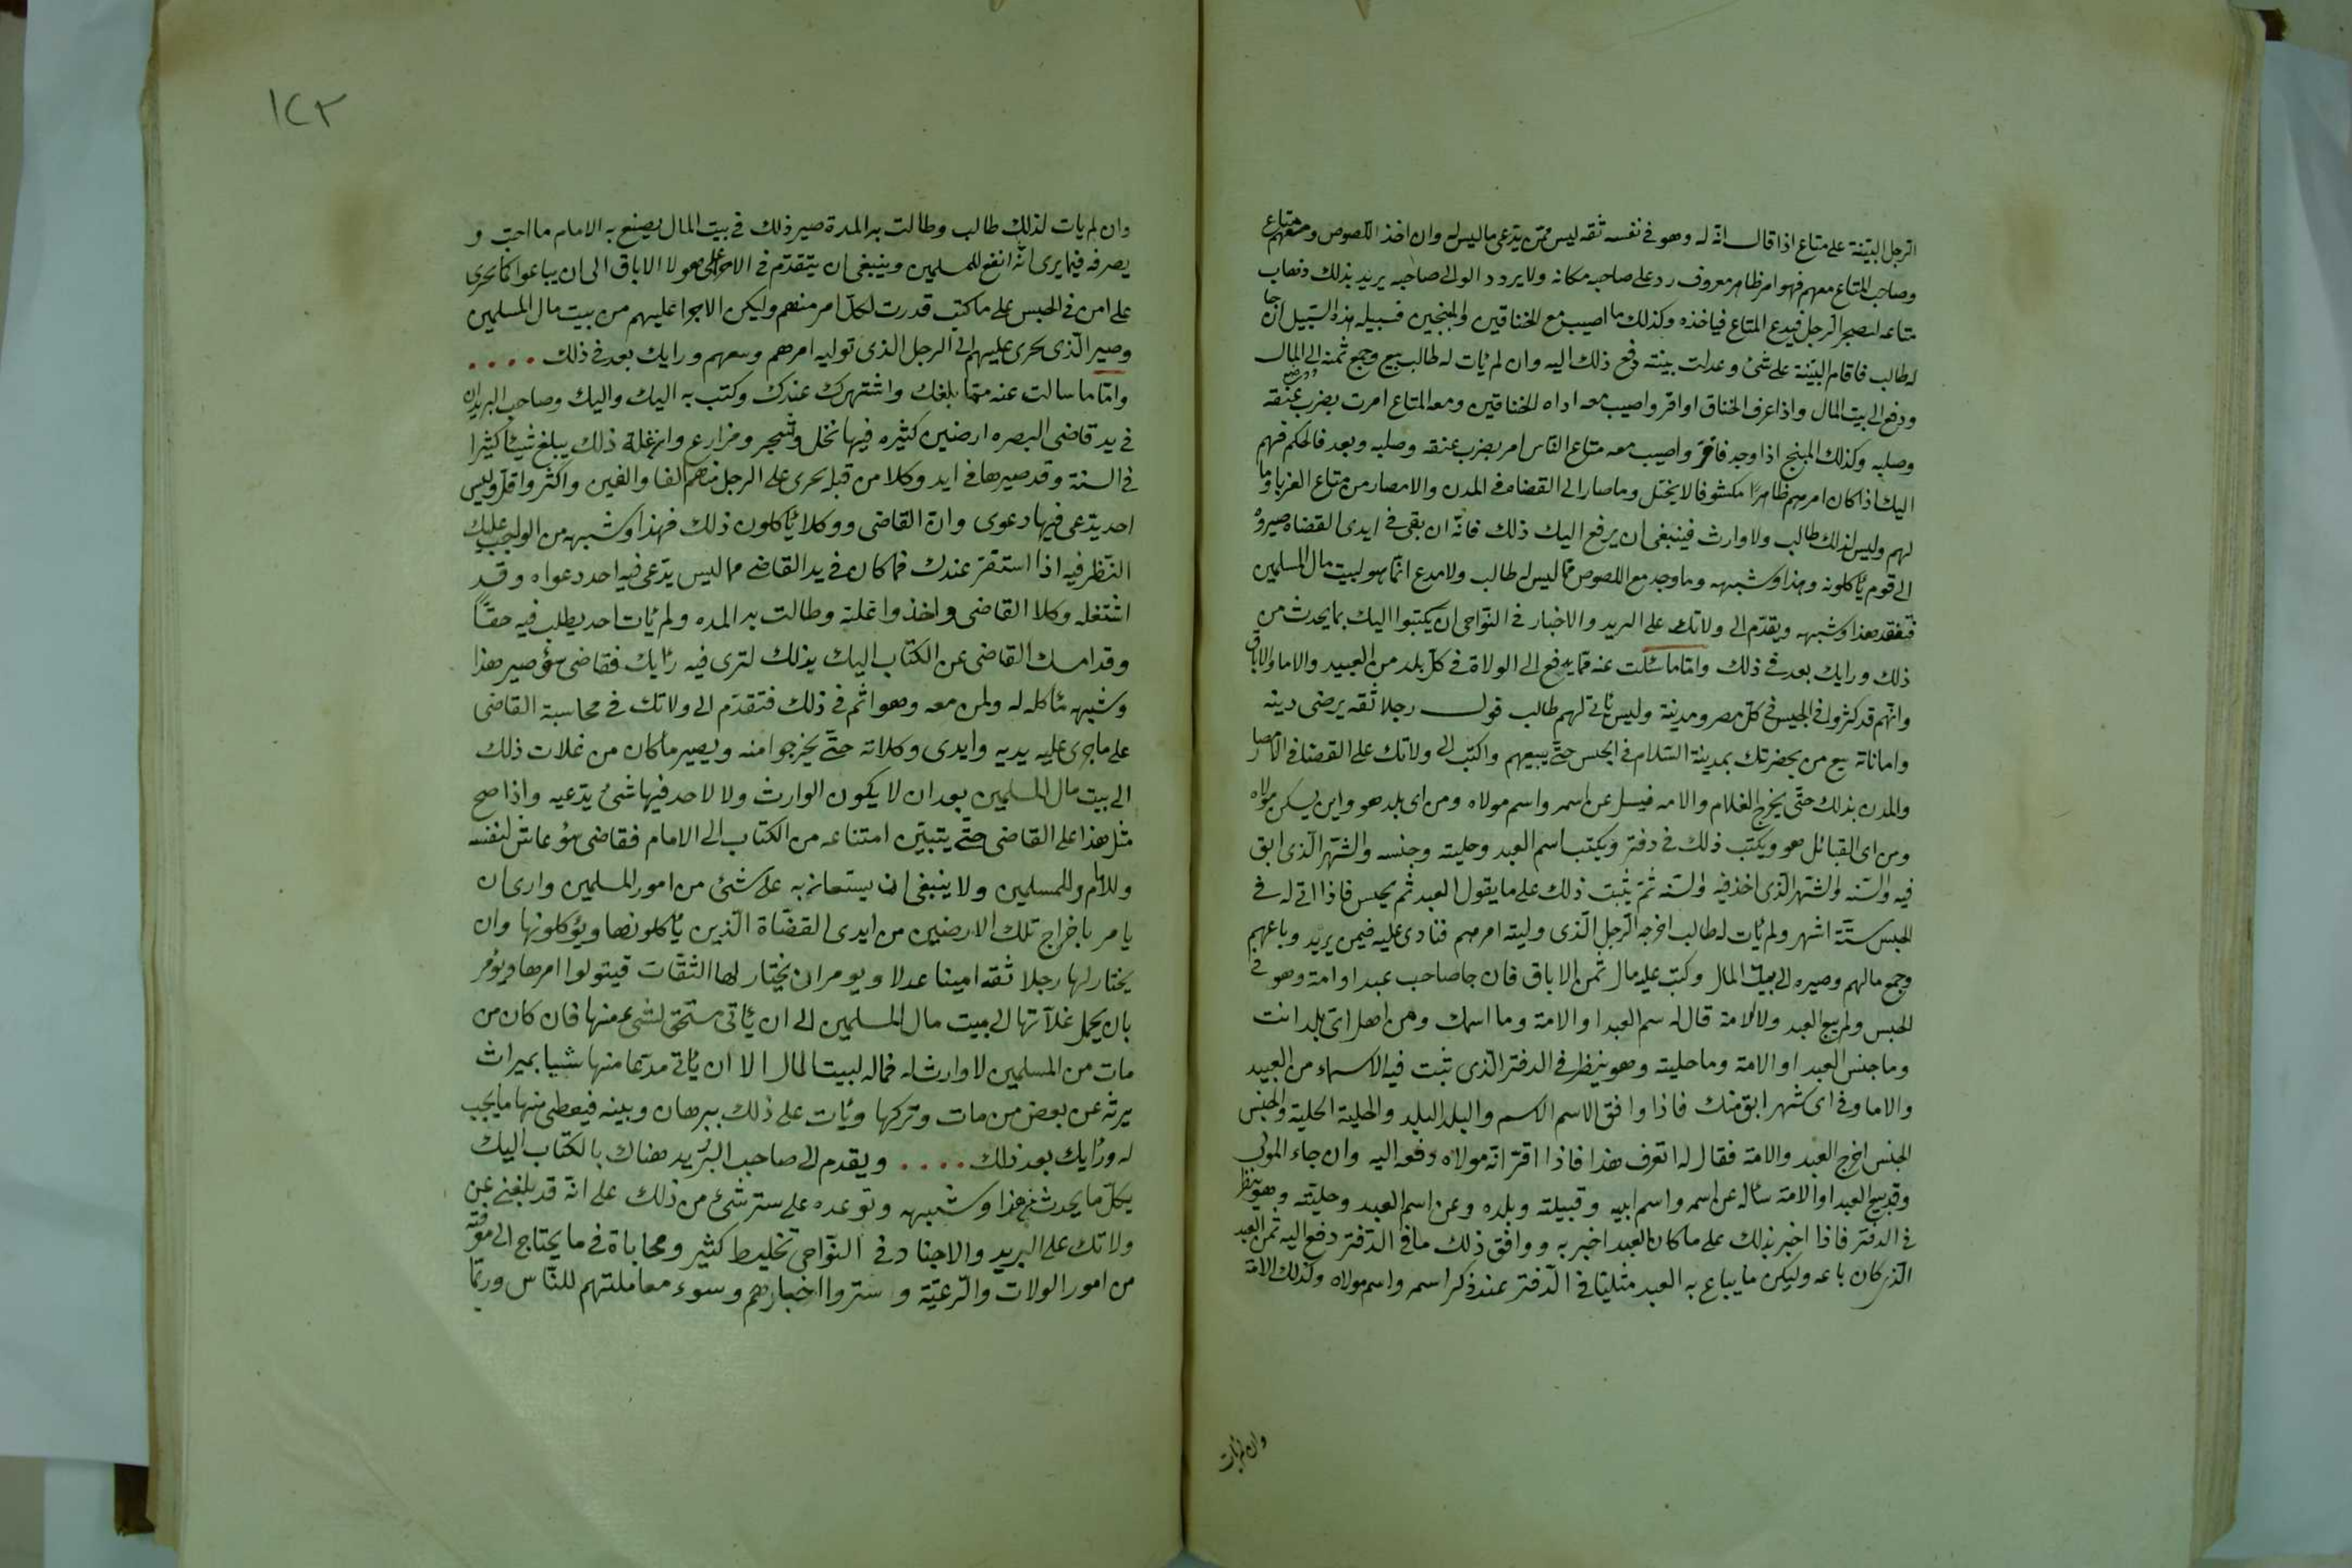 الرجل البيّنة على متاع اذا قال انه له وهو فى نفسه ثقه ليس ممن يدّعى ما ليس له وان اخذ اللصوص ومعهم متاع
وصاحب المتاع معهم فهو امر ظاهر معروف رد على صاحبه مكانه ولا يردد الوالى صاحبه يريد بذلك ذهاب
متاعه ليضجر الرجل فيدع المتاع فياخذه وكذلك ما اصيب مع الخناقين والمبنجين فسبيله هذه السّبيل ان جا
له طالب فاقام البيّنة على شئ وعدلت بينته دفع ذلك اليه وان لم يأت له طالب بيع وجمع ثمنه الى المال
ودفع الى بيت المال واذا عرف الخناق او اقر واصيب معه اداه الخناقين ومعه المتاع امرت بضرب عنقه
وصلبه وكذلك المبنج اذا وجد فاقر واصيب معه متاع الناس امر بضرب عنقه وصلبه وبعد فالحكم فيهم
اليك اذا كان امرهم ظاهرًا مكشوفا لا يختل وما صار الى القضاه فى المدن والامصار من متاع الغربا وما
لهم وليس لذلك طالب ولا وارث فينبغى ان يرفع اليك ذلك فانّه ان بقى فى ايدى القضاه صيروه
الى قوم يأكلونه وهذا وشبهه وما وجد مع اللصوص مما ليس له طالب ولا مدع انّما هو لبيت مال المسلمين
فتفقد هذا وشبهه ويقدّم الى ولاتك على البريد والاخبار فى النّواحى ان يكتبوا اليك بما يحدث من
ذلك ورايك بعد فى ذلك وامّا ما سئلت عنه ممّا يرفع الى الولاة فى كلّ بلد من العبيد والاما والاباق
وانهم قد كثروا فى الحبس فى كلّ مصر ومدينة وليس يأتى لهم طالب فول رجلا ثقه يرضى دينه
وامانته بيع من بحضرتك بمدينة السّلام فى الحبس حتّى يبيعهم واكتب الى ولاتك على القضا فى الامصار
والمدن بذلك حتّى يخرج الغلام والامه فيسل عن اسمه واسم مولاه ومن اى بلد هو واين يسكن مولاه
ومن اى القبائل هو ويكتب ذلك فى دفتر ويكتب اسم العبد وحليته وجنسه والشّهر الّذى ابق
فيه والسّنه والشّهر الّذى اخذ فيه والسّنه ثمّ يثبت ذلك على ما يقول العبد ثم يحبس فاذا اتى له فى
الحبس ستّة اشهر ولم يأت له طالب اخرجه الرجل الّذى وليته امرهم فنادى عليه فيمن يريد وباعهم
وجمع مالهم وصيره الى بيت المال وكتب عليه مال ثمن الاباق فان جا صاحب عبد او امة وهو فى
الحبس ولم يبع العبد ولا الامة قال له سم العبد او الامة وما اسمك ومن اهل اى بلد انت
وما جنس العبد او الامة وما حليته وهو ينظر فى الدفتر الّذى تثبت فيه الاسماء من العبيد
والاما وفى اى شهر ابق منك فاذا وافق الاسم الاسم والبلد البلد والحلية الحلية والجنس
الجنس اخرج العبد والامة فقال له اتعرف هذا فاذا اقر انّه مولاه دفعه اليه وان جاء المولى
وقد بيع العبد او الامة سأله عن اسمه واسم ابيه وقبيلته وبلده وعن اسم العبد وحليته وهو ينظر
فى الدفتر فاذا اخبر بذلك على ما كان العبد اخبر به ووافق ذلك ما فى الدّفتر دفع اليه ثمن العبد
الّذى كان باعه وليكن ما يباع به العبد مثبتا فى الدّفتر عند ذكر اسمه واسم مولاه وكذلك الامة
وان لم يأت
١٢٣
وان لم يات لذلك طالب وطالت به المدة صير ذلك فى بيت المال يصنع به الامام ما احبّ و
يصرفه فيما يرى انّه انفع للمسلمين وينبغى ان يتقدّم فى الاجرا على هولا الاباق الى ان يباعوا كما يجرى
على من فى الحبس على ما كتب قدرت لكلّ امر منهم وليكن الاجرا عليهم من بيت مال المسلمين
وصير الّذى يجرى عليهم الى الرجل الذى توليه امرهم وبيعهم ورايك بعد فى ذلك ....
وامّا ما سالت عنه ممّا بلغك واشتهر عندك وكتب به اليك واليك وصاحب البريد ان
فى يد قاضى البصره ارضين كثيره فيها نخل وشجر ومزارع وان غلة ذلك يبلغ شيئا كثيرا
فى السنة وقد صيرها فى ايد وكلا من قبله يجرى على الرجل منهم الفا والفين واكثر واقلّ وليس
احد يدّعى فيها دعوى وان القاضى ووكلا يأكلون ذلك فهذا وشبهه من الواجب عليك
النّظر فيه اذا استقر عندك فما كان فى يد القاضى مما ليس يدّعى فيه احد دعواه وقد
اشتغله وكلا القاضى واخذوا غلته وطالت به المده ولم يأت احد يطلب فيه حقًّا
وقد امسك القاضى عن الكتاب اليك بذلك لترى فيه رأيك فقاضى سؤ صير هذا
وشبهه مأكله له ولمن معه وهو اثم فى ذلك فتقدّم الى ولاتك فى محاسبة القاضى
على ما جرى عليه يديه وايدى وكلاته حتّى يخرجوا منه ويصير ما كان من غلات ذلك
الى بيت مال المسلمين بعد ان لا يكون الوارث ولا لاحد فيها شئ يدّعيه واذا صح
مثل هذا على القاضى حتّى يتبيّن امتناعه من الكتاب الى الامام فقاضى سؤ غاش لنفسه
وللامام وللمسلمين ولا ينبغى ان يستعان به على شئ من امور المسلمين وارى ان
يامر باخراج تلك الارضين من ايدى القضاة الّذين يأكلونها ويؤكلونها وان
يختار لها رجلا ثقه امينا عدلا ويومر ان يختار لها الثقات فيتولوا امرها ويؤمر
بان يحمل غلاّتها الى بيت مال المسلمين الى ان يأتى مستحق لشئ منها فان كان من
مات من المسلمين لا وارث له فماله لبيت المال الا ان يأتى مدعا منها شيا بميراث
يرثه عن بعض من مات وتركها ويأت على ذلك ببرهان وبينه فيعطى منها ما يجب
له ورأيك بعد ذلك .... ويقدم الى صاحب البريد هناك بالكتاب اليك
بكلّ ما يحدث من هذا وشبهه وتوعده على ستر شئ من ذلك على انّه قد بلغنى عن
ولاتك على البريد والاجناد فى النّواحى تخليط كثير ومحاباة فى ما يحتاج الى معرفته
من امور الولات والرّعيّة وستروا اخبارهم وسوء معاملتهم للنّاس وربّما